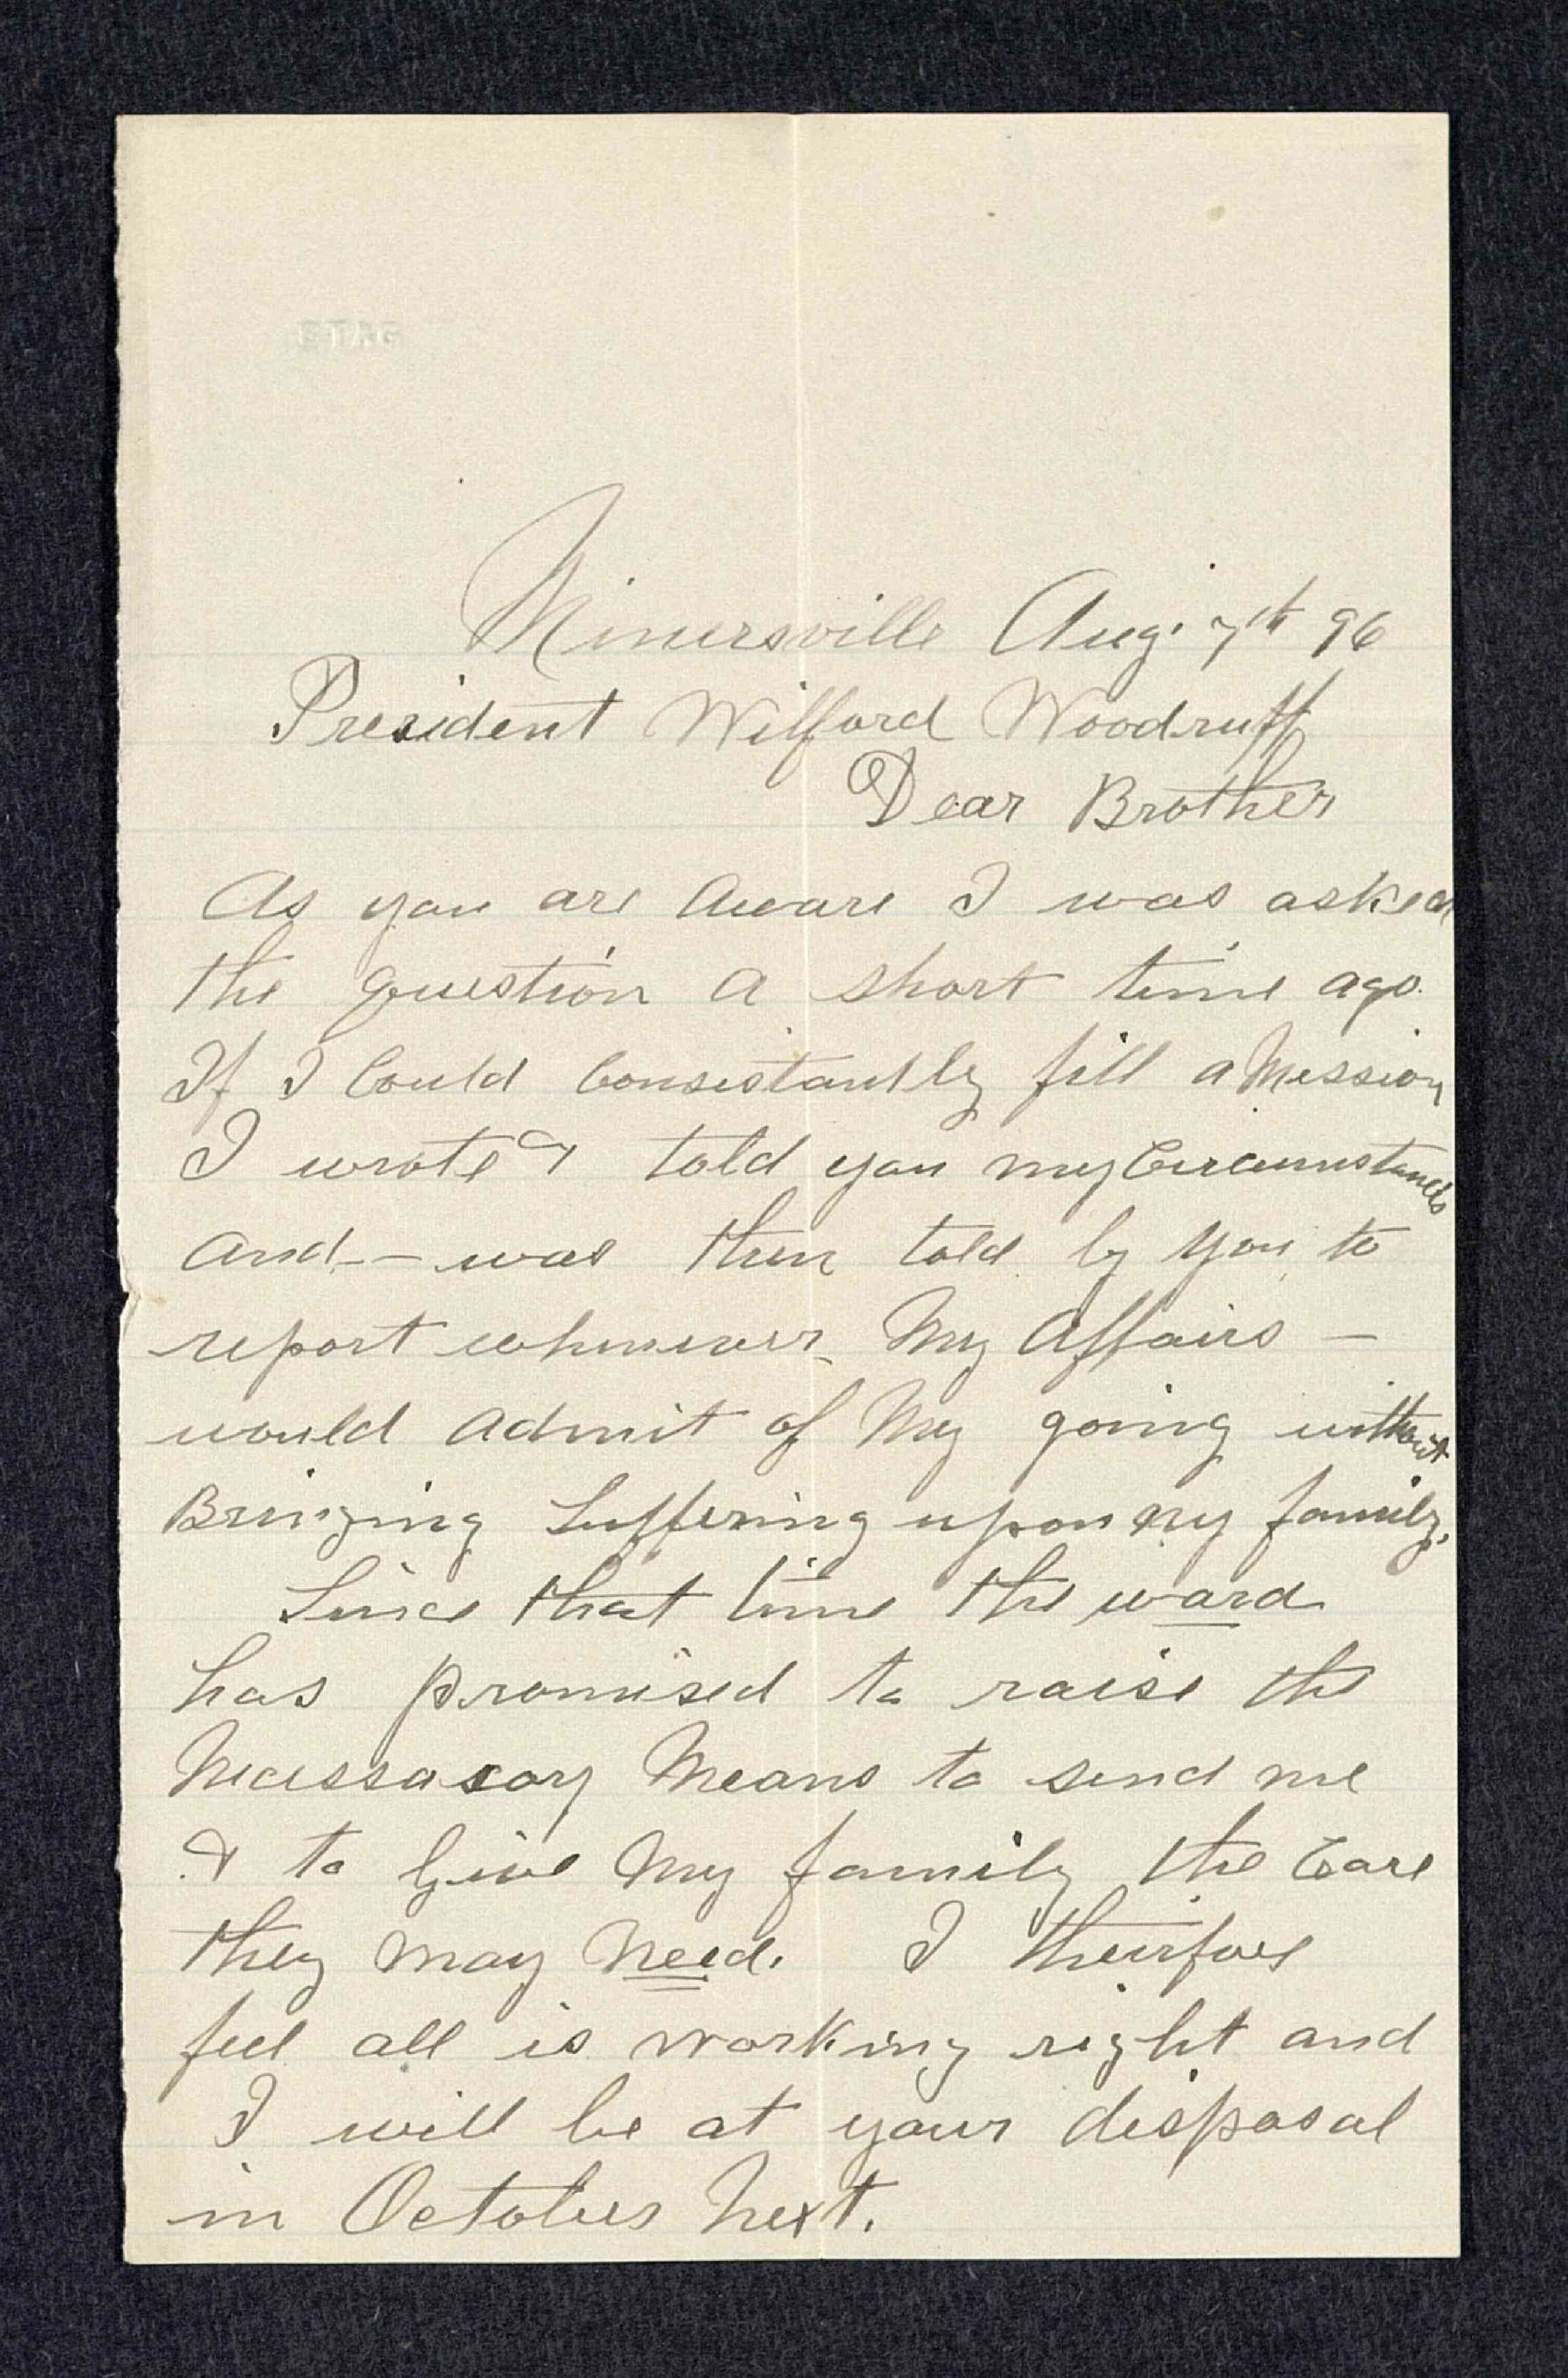 Minersville Aug. 7th 96
President Wilford Woodruff
Dear Brother
As you are aware I was asked
the question a short time ago.
If I Could Consistantly fill a Mission
I wrote & told you my Circumstances
and — was then told by You to
report whenever My affairs —
would admit of My going without
Bringing Suffering upon my family.
Since that time the ward
has promised to raise the
Necessasary Means to send me
& to Give My family the Care
they may Need. I theirfore
feel all is working right and
I will be at your disposal
in October Next.